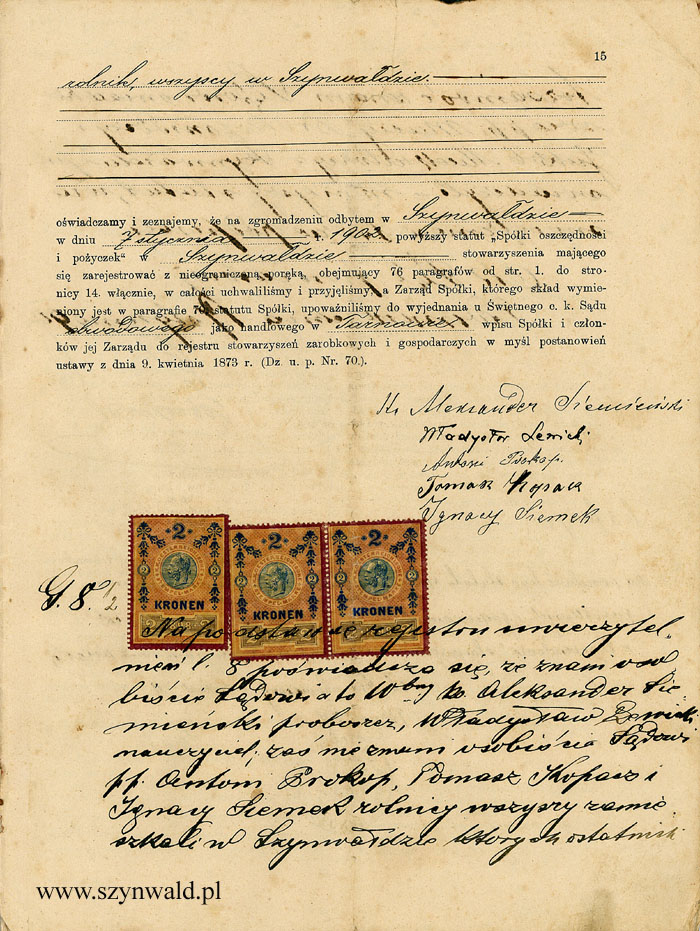 15
rolnik, wszyscy w Szynwałdzie.
oświadczamy i zeznajemy, że na zgromadzeniu odbytem w Szynwałdzie
w dniu 7 stycznia r. 1902 powyższy statut „Spółki oszczędności
i pożyczek" w Szynwałdzie stowarzyszenia mającego
się zarejestrować z nieograniczoną poręką, obejmujący 76 paragrafów od str. 1. do stro-
nicy 14. włącznie, w całości uchwaliliśmy i przyjęliśmy, a Zarząd Spółki, którego skład wymie-
niony jest w paragrafie 76 statutu Spółki, upoważniliśmy do wyjednania u Świetnego c. k. Sądu
obwodowego jako handlowego w Tarnowie wpisu Spółki i człon-
ków jej Zarządu do rejestru stowarzyszeń zarobkowych i gospodarczych w myśl postanowień
ustawy z dnia 9. kwietnia 1873 r. (Dz. u. p. Nr. 70.).
Ks. Aleksander Siemieński
Władysław Lewicki
Antoni Prokop
Tomasz Kopacz
Ignacy Siemek
2
KRONEN
2
KRONEN
2
KRONEN
G. 8 1/2
Na podstawie rejestru uwierzytel-
nień l. 8 poświadcza się, że znani oso
biście Sądowi a to Wbny ks. Aleksander Sie
mienski proboszcz, Władysław Lewicki
nauczyciel; zaś nieznani osobiście Sądowi
pp. Antoni Prokop, Tomasz Kopacz i
Ignacy Siemek rolnicy wszyscy zamie
szkali w Szynwałdzie których ostatnich
www.szynwald.pl